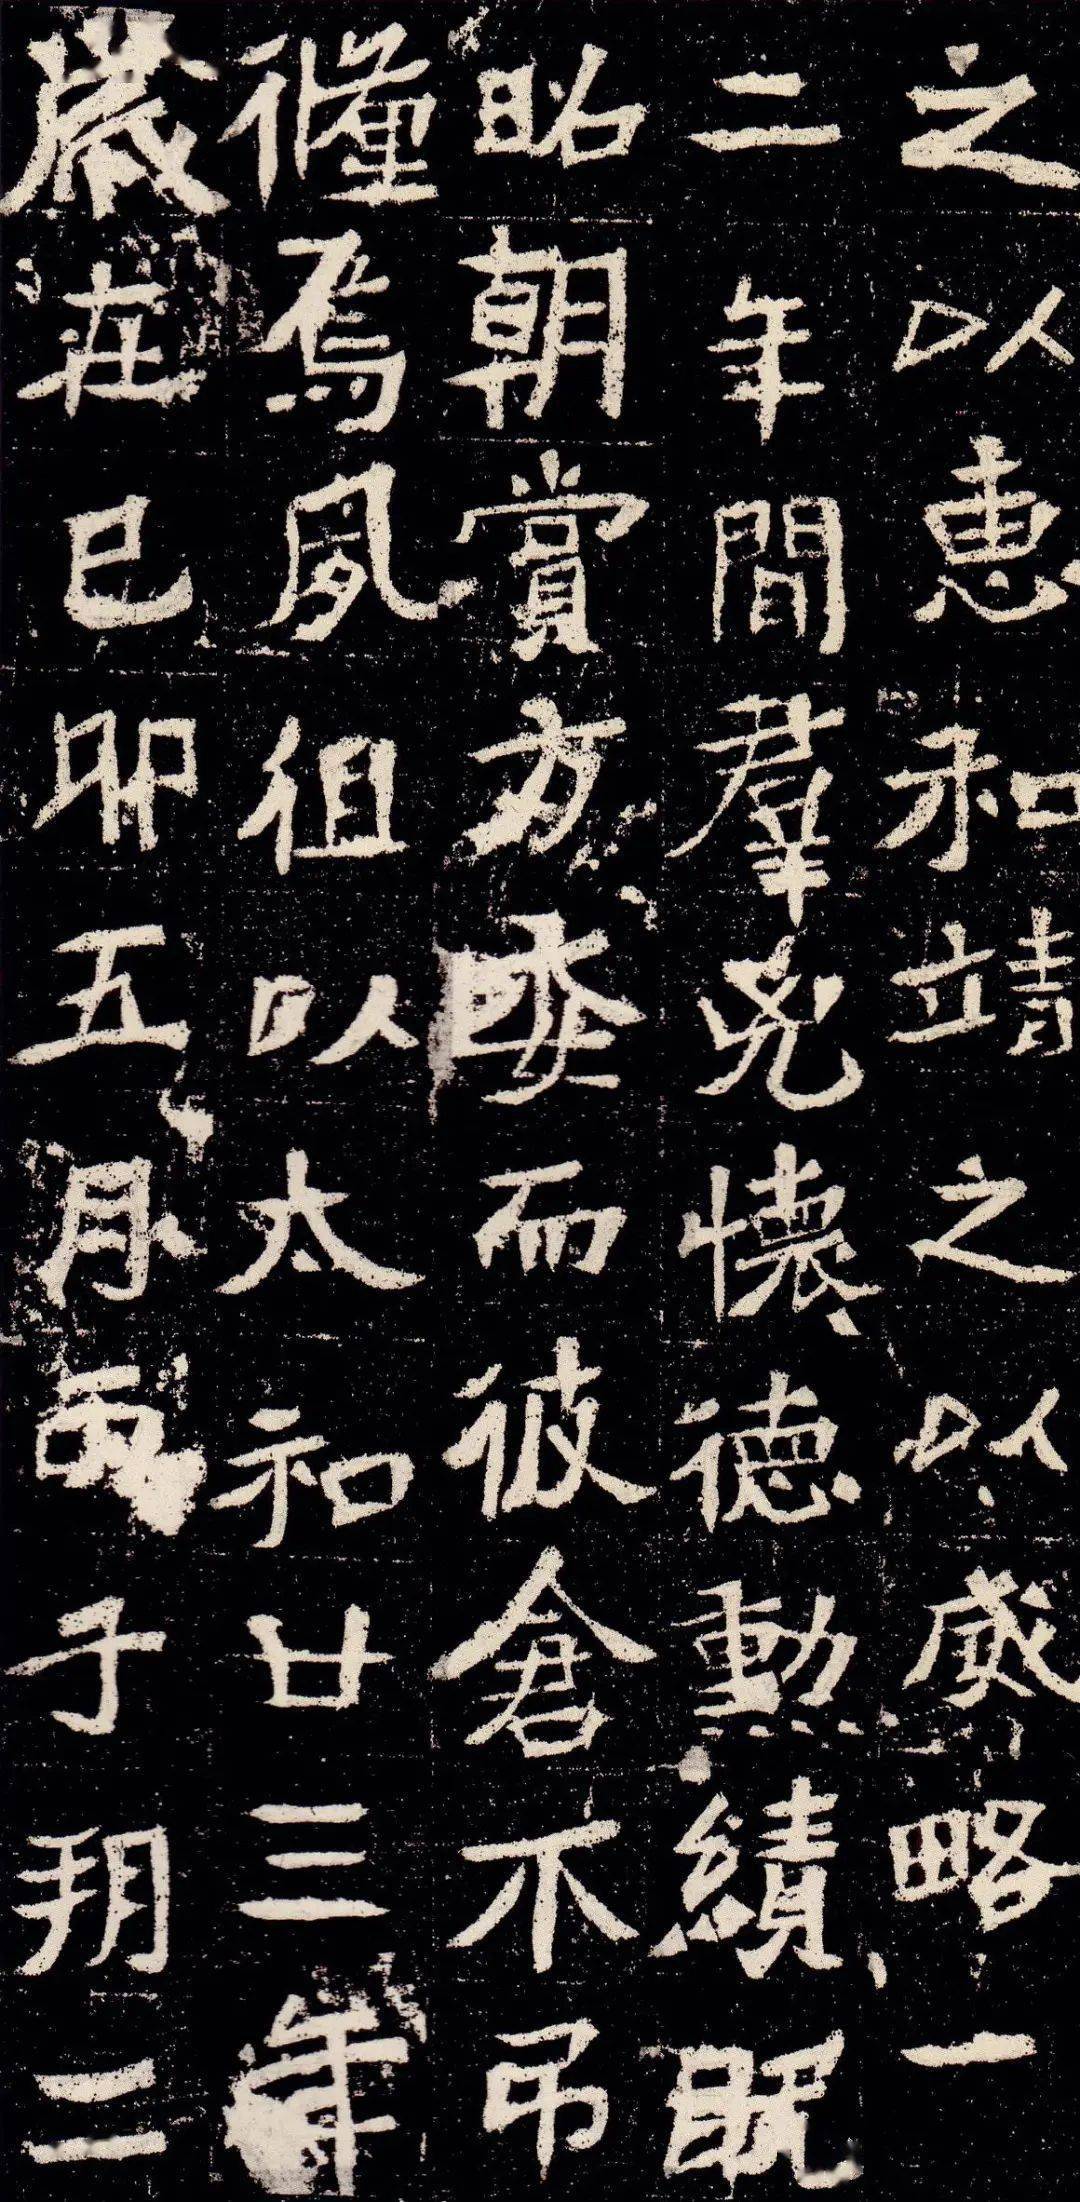 之以惠和靖之以威略一
二年間羣兇懷德勳績既
昭朝賞方委而彼倉不吊
焉夙徂以太和廿三年
歲在己卯五月丙子朔二